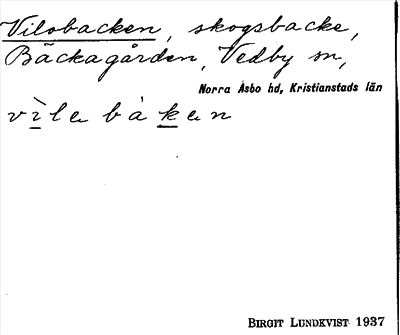 Vilobacken, skogsbacke,
Bäckagården, Vedby sn,
Norra Åsbo hd, Kristianstads län
vìle bàken
BIRGIT LUNDKVIST 1937